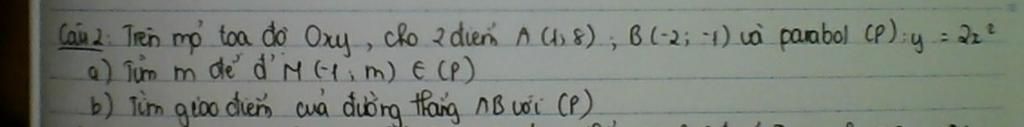 Câu 2: Trên mp toa độ Oxy, cho 2 điểm A (1; 8); B (-2; -1) và parabol (P): y = 2x²
a) Tìm m để đ' M (-1; m) ∈ (P)
b) Tìm giao điểm của đường thẳng AB với (P)